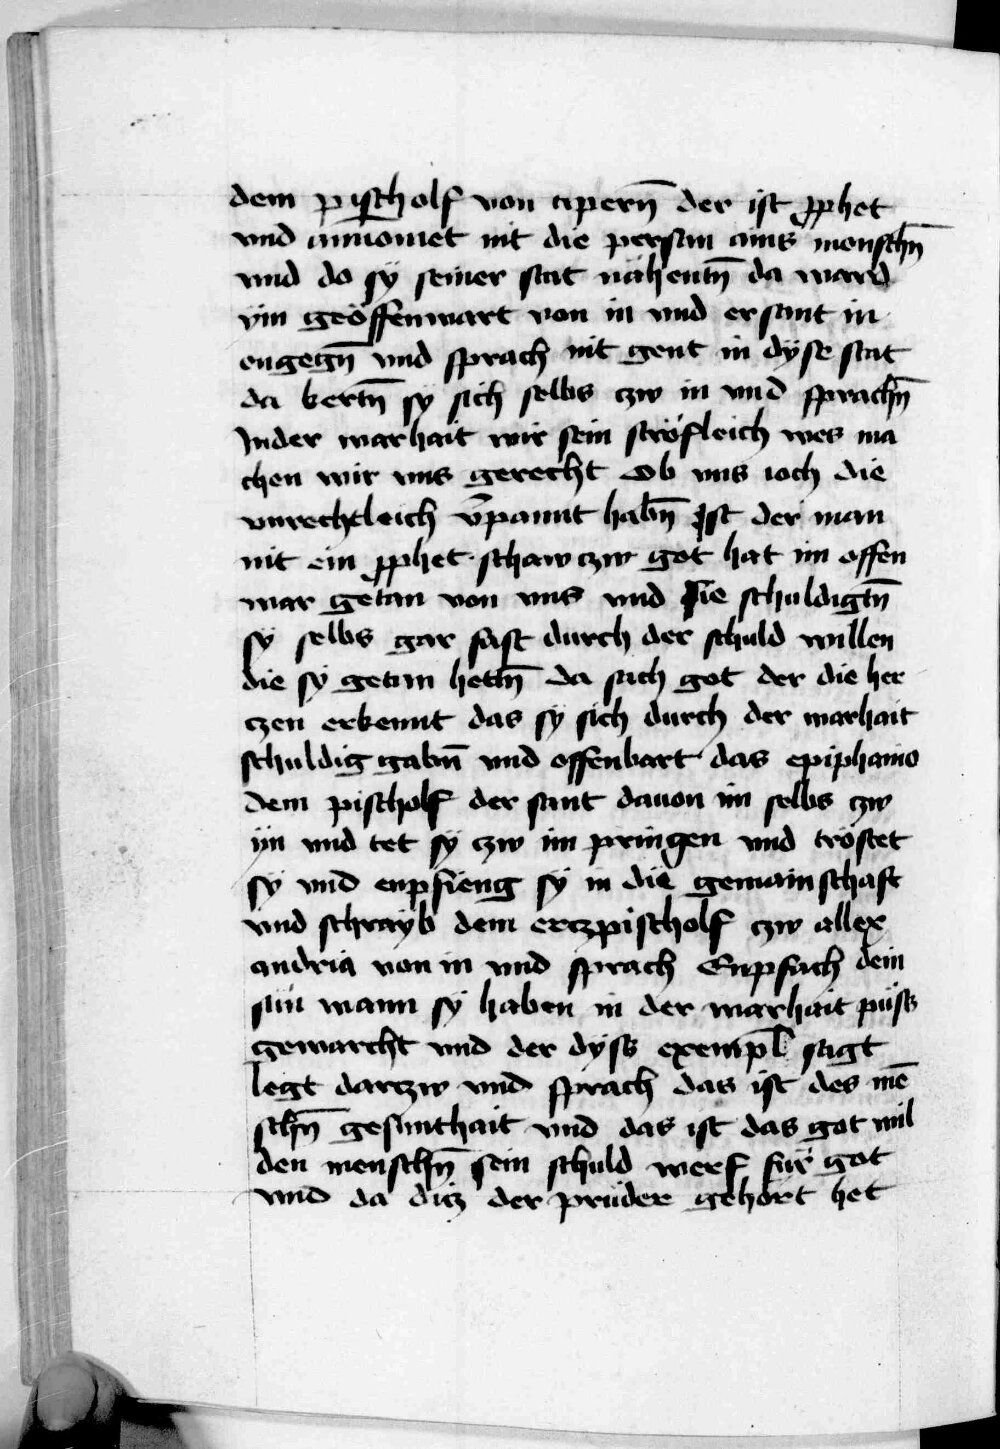 dem pischolf von cipern̄ der ist p̱phet
vnd annomet nit die persan ains monschn̄
vnd do sÿ seiner stat nähentn̄ da ward
ÿm geöffenwart von in vnd er sant in
engegn̄ vnd sprach nit gent in dÿse stat
da kertn̄ sÿ sich selbs czw in vnd sprachn̄
Jnder warhait wir sein ströfleich wes ma
chen wir vns gerecht Ob vns ioch die
vnrechtleich v̄pannt habn̄ Jst der man
nit ein p̱phet · schaw czw got hat im offen
war getan von vns vnd sie schuldigtn̄
sÿ selbs gar fast durch der schuld willen
die sÿ getan hettn̄ da sach got der die her
czen erkennt das sÿ sich durch der warhait
schuldig gabn̄ vnd offenbart das epiphanio
dem pischolf der sant dauon im selbs czw
ÿn vnd tet sÿ czw im pringen vnd tröstet
sÿ vnd enpfieng sÿ in die gemainschaft
vnd schrayb dem erczpischolf czw allex
andria von in vnd sprach Enpfach dein
sün wann sÿ haben in der warhait püss
gewarcht vnd der dÿss exempl̄ sagt
legt darczw vnd sprach das ist des mē
schn̄ gesunthait vnd das ist das got wil
den menschn̄ sein schuld werf für got
vnd da dicz der prüder gehört het